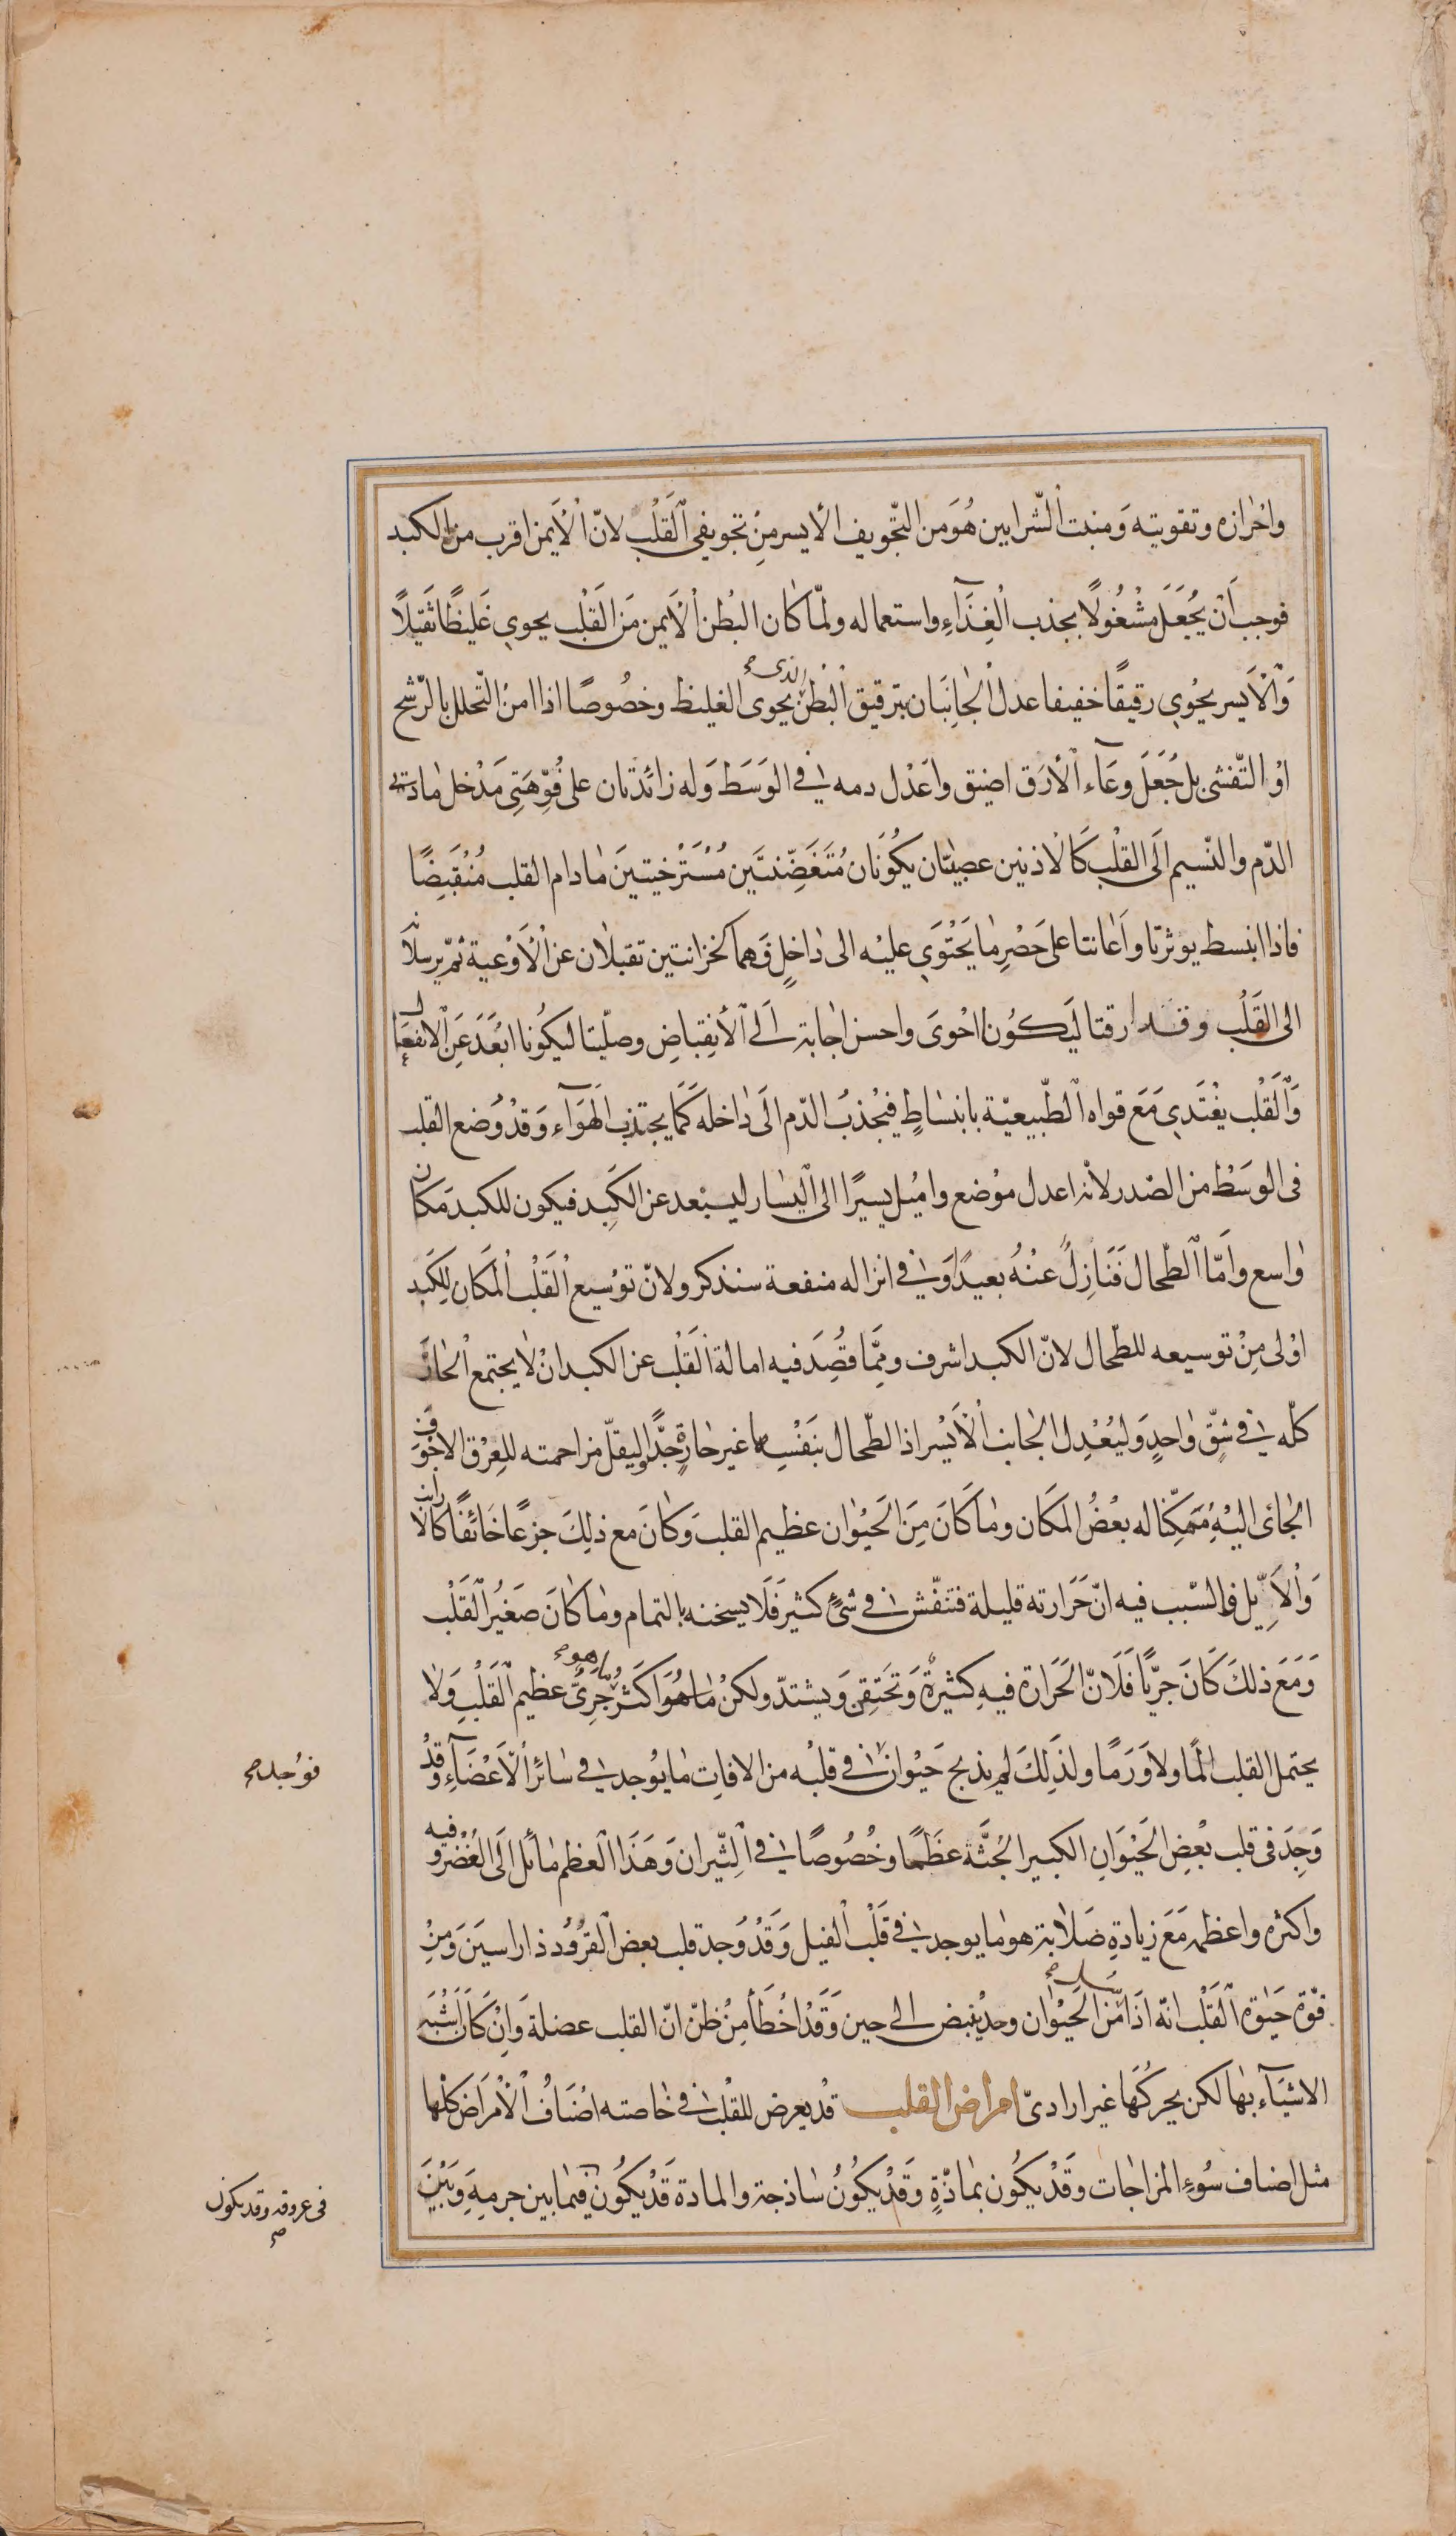 واخرازه وتقويته وَمنبت الشّرايين هُوَ من التّجويف الأيسر مِنْ تجويفى القَلْب لانّ الأيمن اقرب من الكبد
فوجب اَن يُجْعَلَ مشْغُولًا بجذب الْغِذَآءِ واستعماله ولمّا كان البُطن الْاَيمن مَن الَقَلْب يحوي غَليظًا ثَقيلًا
وَالْاَيسر يحْوي رقيقًا خفيفا عدل الْجانِبَان بترقيق الْبُطن الذى يحوى الغليظ وخصُوصًا اذا امنُ التّحلل بالرّشح
اوْ التّفشى بل جَعَلَ وعَآء الْأرَق اضيق واَعْدل دمه فى الوَسَط وَله زائدتان على فُوّهَتِى مَدْخل مادتى
الدّم والنّسيم الَى القلْب كَالاذنين عصبيّتان يكُونَان مُتَغَضِّنتَين مُسْتَرْخيتينَ مادام القلب مُنْقَبِضًا
فاذا انبسط يوثرتا واَعانتا على حَصْرِ ما يَحْتْوَي عليْه الى داخلٍ وَهما كخزانتين تقبلان عن الْاَوْعية ثمّ يرسلان
الى القَلْب وقد ارقتا ليَكُونا احْوىَ واحسن اجابة الَى الأنِقِبَاضِ وصلّبتا ليكُونا ابْعَدَ عَنِ الانفعال
وَالَقَلْب يغْتَدي مَعَ قواه الطّبيعيّة بانبسَاطٍ فيجْذبُ الدّم الَى داخله كَمَا يجتذب الهَوَآء وَقدْ وُضع القلب
فى الوسَط من الصّدر لانه اعدل موْضع واميُل يسيرًا الى اليَسار ليسبْعد عن الكَبِد فيكون للكبد مَكان
واسع واَمّا الطّحال فَنَازِلُ عَنْهُ بعيدًا وَفى انزاله منفعة سنذكر ولانّ توْسيع الْقَلْب المْكَان لِلكَبد
اوْلى مِنْ توسيعه للطّحال لانّ الكبد اشرف ومِمَّا قُصِدَ فيه امالة الَقَلْب عن الكبد انْ لا يجتمع الْحارّ
كلّه فى شِقّ واحِدٍ وَليُعْدِل الجانب الْأَيْسر اذ الطّحال بنَفْسِه غير حارةٍ جدًّا وليقلّ مزاحمته للعِرْق الاجْوَف
الجائى اليْهِ مُمَكِّنا له بعْضُ المكَان وما كَانَ مِنَ الحَيْوان عظيم القلبَ وَكانَ مع ذلِكَ جزعًا خَائفًا كالارانب
وَالاَيِّل فالسّبب فيه انّ حَرَارته قليلة فتَفّش فى شئٍ كثير فَلَا يسخنه بالتمام وما كانَ صَغيُر الَقَلْب
وَمَعَ ذلكَ كَانَ جرّيًا فَلَانّ الَحَرَارة فيهِ كثيرةٌ وَتحَتِقِن وَيشتدّ ولكنْ ما هُوَ اكَثر جَرِىٌّ ما هو عظيم القَلْبِ وَلا
يحتمل القلب الَمًا ولاَ وَرَمًا ولذَلِكَ لم يذبح حَيْوان فى قلبْه من الافاتِ ما يوُجد فى سَائر الأَعْضَآءِ وقدْ
وَجِدَ فى قلب بعْضِ الَحيْوَانِ الكبير الجُثَّة عظَمًا وخُصُوصًا فى الثّيران وَهَذَا العظم مائل الَى الغُضْرو فيه
واكثره واعظمه مَعَ زيادةِ صَلابة هو ما يوجد فى قَلْب الفيل وَقَدْ وُجد قلب بعض القرُود ذا راسينَ وَمِنْ
قوّة حَيٰوة الَقَلْب انّه اذا سل من الَحيْوان وجد ينبض الى حين وَقَدْ اخْطَأ مَنْ ظنّ انّ القلب عضلة وَاِنْ كَانَ اَشْبَه
الاشيَآء بها لكن يحركُهَا غير ارادىّ امراض القلب قدْ يعرض للقلْب فى خاصته اصْنَافُ الأمْرَاض كلّها
مثل اصناف سُوءِ المزاجات وقَدْ يكُون بمادّةٍ وقَدْ يكُونُ سَاذجة والمادة قَدْ يكُون فيما بين جرمِهِ وَبَيْنَ
فوُجد
فى عروقه وقد يكون